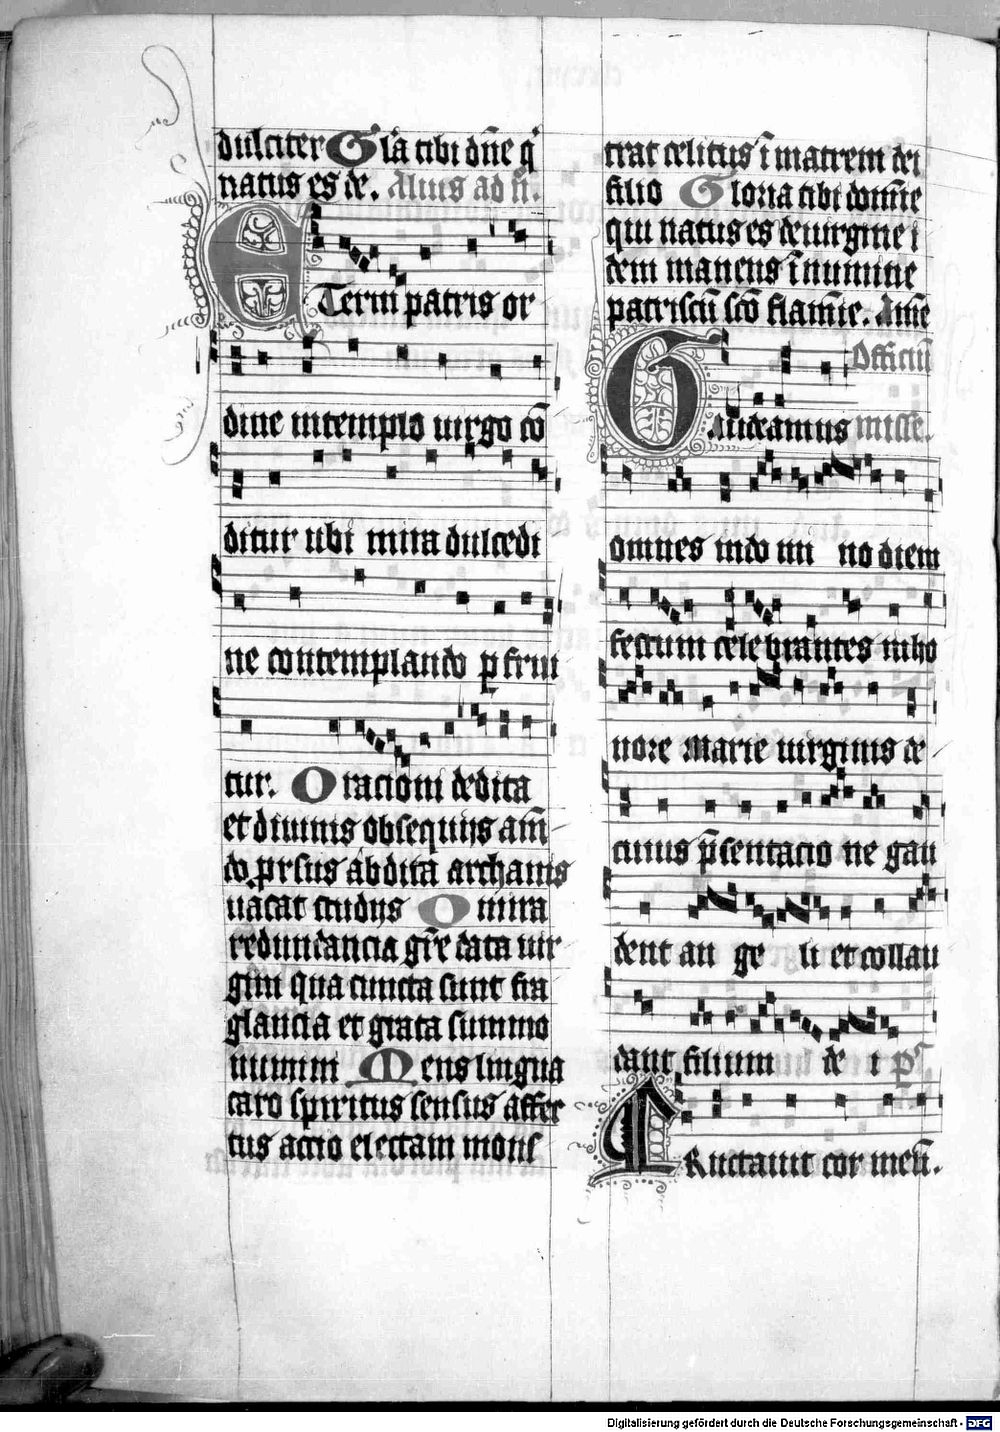 dulciter Gl'a tibi dn̄e q'
natus es de. Alius ad n̄.
ETerni patris or
dine in templo uirgo cō
ditur ubi mira dulcedi
ne contemplando p̲ frui
tur. Oracioni dedita
et diuinis obsequijs am̄
do prsus abdita archanis
uacat studijs O mira
redundancia gr̄e data uir
gini qua cuncta sunt fra
glancia et grata summo
numini Mens lingua
caro spiritus sensus affec
tus actio electam mons
trat celitus ī matrem dei
filio Gloria tibi domīe
qui natus es de uirgine i
dem manens ī numine
patris cū scō flamīe. Amē
Officiū
Gaudeamus misse.
omnes in do mi no diem
festum celebrantes in ho
nore marie uirginis de
cuius p̄sentacio ne gau
dent an ge li et collau
dant filium de i ps̄
ERuctauit cor meū.
Digitalisierung gefördert durch die Deutsche Forschungsgemeinschaft - DFG